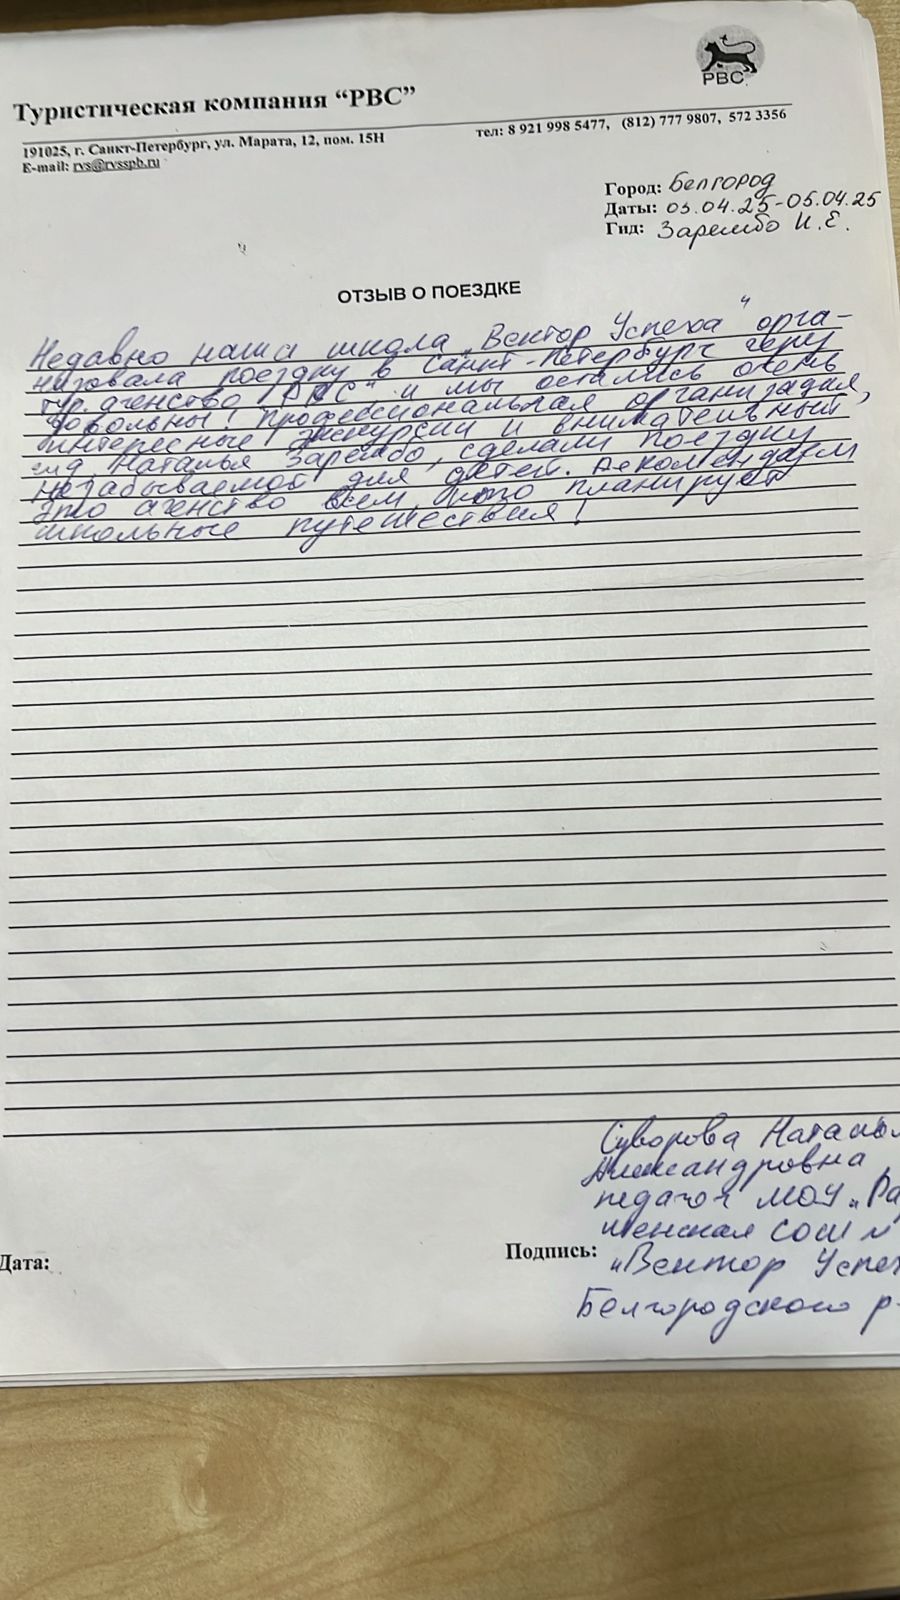 РВС
Туристическая компания “РВС”
191025, г. Санкт-Петербург, ул. Марата, 12, пом. 15Н
тел: 8 921 998 5477, (812) 777 9807, 572 3356
E-mail: rvs@rvsspb.ru
Город: Белгород
Даты: 03.04.25-05.04.25
Гид: Зарембо Н.Е.
ОТЗЫВ О ПОЕЗДКЕ
Недавно наша школа „Вектор Успеха“ орга-
низовала поездку в Санкт-Петербург через
тур. агенство „РВС“ и мы остались очень
довольны! Профессиональная организация,
интересные экскурсии и внимательный
гид Наталья Зарембо, сделали поездку
незабываемой для детей. Рекомендуем
это агенство всем, кто планирует
школьные путешествия!
Суворова Наталь
Александровна
педагог МОУ „Раз
уменская СОШ
Дата:
Подпись:
„Вектор Успех
Белгородского р-